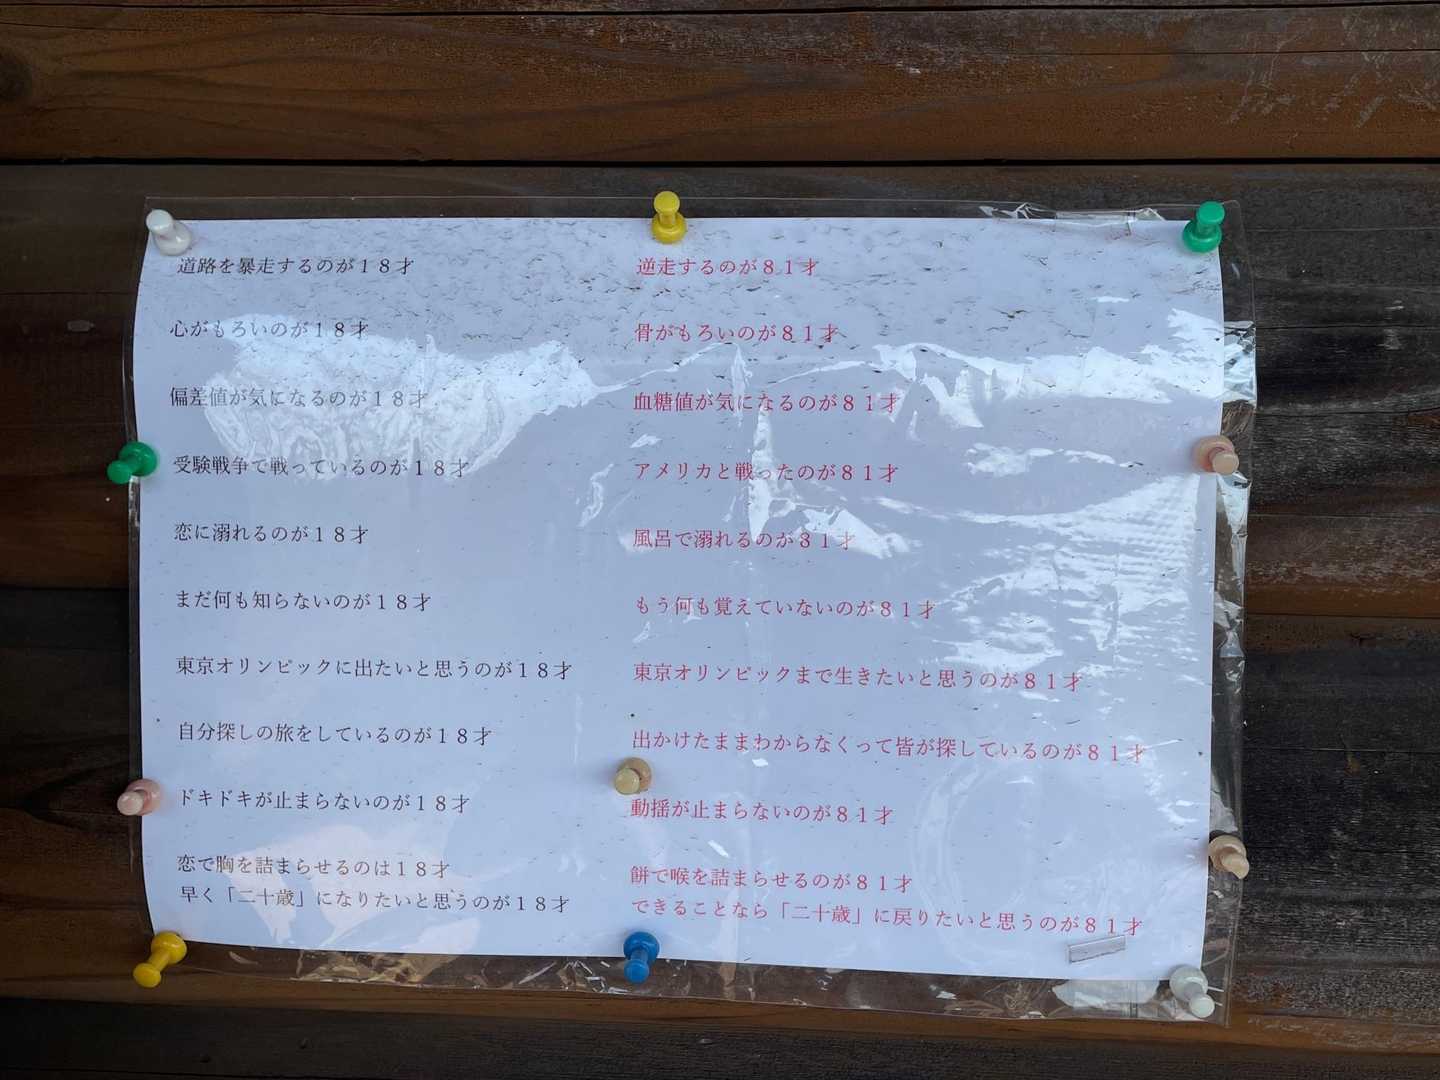 道路を暴走するのが１８才
逆走するのが８１才
心がもろいのが１８才
骨がもろいのが８１才
偏差値が気になるのが１８才
血糖値が気になるのが８１才
受験戦争で戦っているのが１８才
アメリカと戦ったのが８１才
恋に溺れるのが１８才
風呂で溺れるのが８１才
まだ何も知らないのが１８才
もう何も覚えていないのが８１才
東京オリンピックに出たいと思うのが１８才
東京オリンピックまで生きたいと思うのが８１才
自分探しの旅をしているのが１８才
出かけたままわからなくって皆が探しているのが８１才
ドキドキが止まらないのが１８才
動揺が止まらないのが８１才
恋で胸を詰まらせるのは１８才
餅で喉を詰まらせるのが８１才
早く「二十歳」になりたいと思うのが１８才
できることなら「二十歳」に戻りたいと思うのが８１才